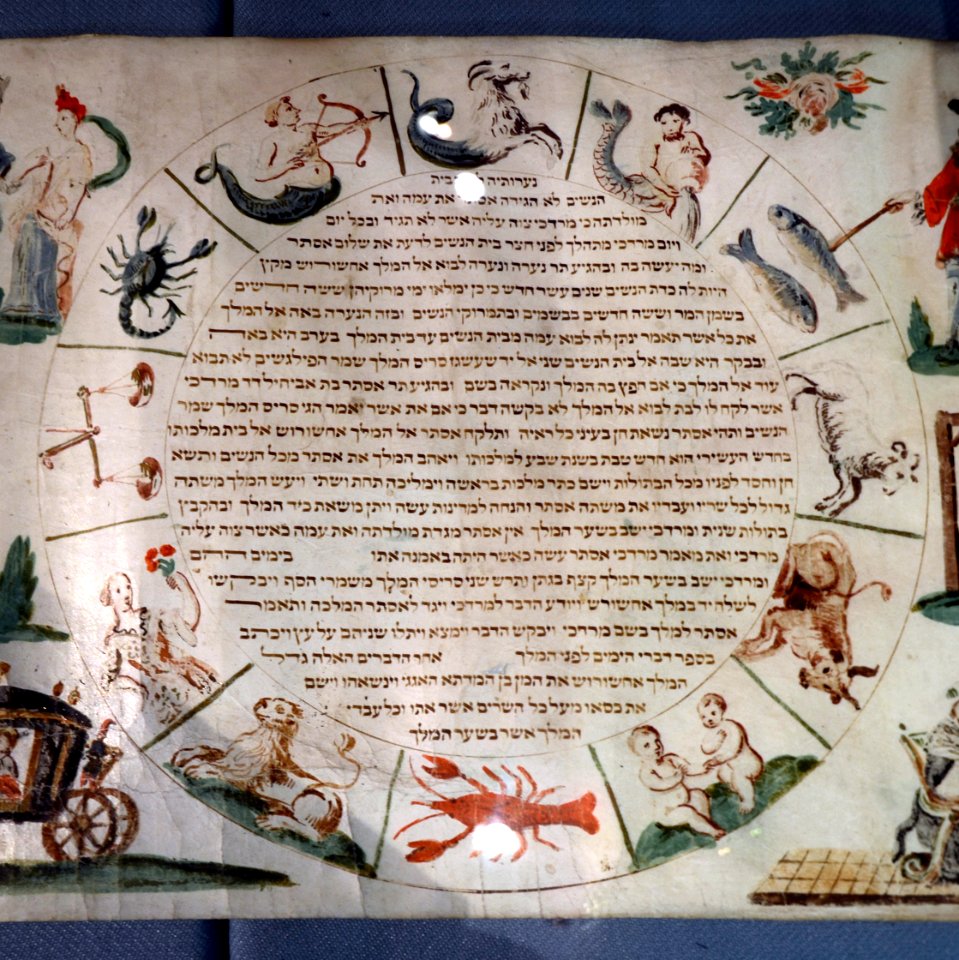 נערותיה בית
הנשים לא הגידה את עמה ואת
מולדתה כי מרדכי צוה עליה אשר לא תגיד ובכל יום
ויום מרדכי מתהלך לפני חצר בית הנשים לדעת את שלום אסתר
ומה יעשה בה ובהגיע תר נערה ונערה לבוא אל המלך אחשורוש מקץ
היות לה כדת הנשים שנים עשר חדש כי כן ימלאו ימי מרוקיהן ששה חדשים
בשמן המר וששה חדשים בבשמים ובתמרוקי הנשים ובזה הנערה באה אל המלך
את כל אשר תאמר ינתן לה לבוא עמה מבית הנשים עד בית המלך בערב היא באה
ובבקר היא שבה אל בית הנשים שני אל יד שעשגז סריס המלך שמר הפילגשים לא תבוא
עוד אל המלך כי אם חפץ בה המלך ונקראה בשם ובהגיע תר אסתר בת אביחיל דד מרדכי
אשר לקח לו לבת לבוא אל המלך לא בקשה דבר כי אם את אשר יאמר הגי סריס המלך שמר
הנשים ותהי אסתר נשאת חן בעיני כל ראיה ותלקח אסתר אל המלך אחשורוש אל בית מלכותו
בחדש העשירי הוא חדש טבת בשנת שבע למלכותו ויאהב המלך את אסתר מכל הנשים ותשא
חן וחסד לפניו מכל הבתולות וישם כתר מלכות בראשה וימליכה תחת ושתי ויעש המלך משתה
גדול לכל שריו ועבדיו את משתה אסתר והנחה למדינות עשה ויתן משאת כיד המלך ובהקבץ
בתולות שנית ומרדכי ישב בשער המלך אין אסתר מגדת מולדתה ואת עמה כאשר צוה עליה
מרדכי ואת מאמר מרדכי אסתר עשה כאשר היתה באמנה אתו בימים ההם
ומרדכי ישב בשער המלך קצף בגתן ותרש שני סריסי המלך משמרי הסף ויבקשו
לשלח יד במלך אחשורש ויודע הדבר למרדכי ויגד לאסתר המלכה ותאמר
אסתר למלך בשם מרדכי ויבקש הדבר וימצא ויתלו שניהם על עץ ויכתב
בספר דברי הימים לפני המלך אחר הדברים האלה גדל
המלך אחשורוש את המן בן המדתא האגגי וינשאהו וישם
את כסאו מעל כל השרים אשר אתו וכל עבדי
המלך אשר בשער המלך